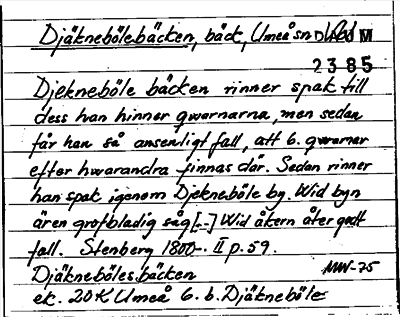 Djäknebölebäcken, bäck, Umeå sn
2385
Djekneböle bäcken rinner spak till
dess han hinner qwarnarna, men sedan
får han så ansenligt fall, att 6. qwarnar
efter hwarandra finnas där. Sedan rinner
han spak igenom Djekneböle by. Wid byn
är en grofbladig såg [--] Wid åkern åter godt
fall. Stenberg 1800-. II p. 59.
Djäkneböles.bäcken MW-75
ek. 20K Umeå 6. b. Djäkneböle